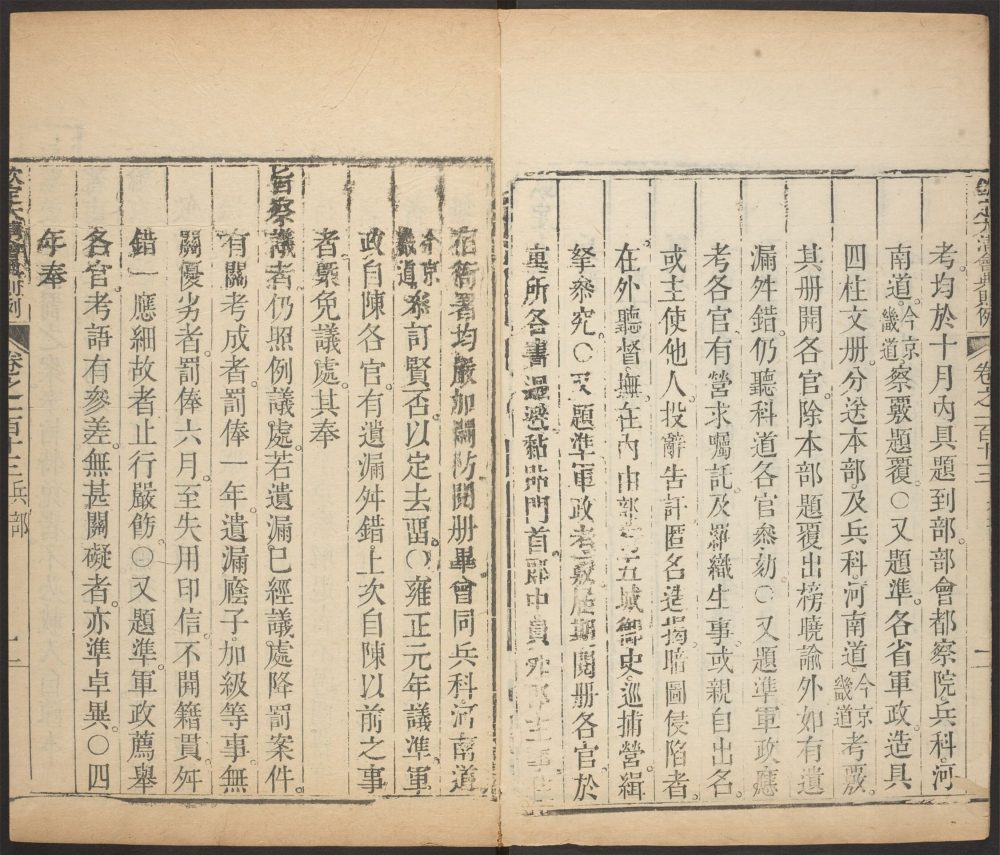 欽定大清會典則例
卷之一百十三
考均於十月內具題到部部會都察院兵科河
南道今京畿道察覈題覆〇又題準各省軍政造具
四柱文册分送本部及兵科河南道今京畿道考覈
其册開各官除本部題覆出榜曉諭外如有遺
漏舛錯仍聽科道各官叅劾〇又題準軍政應
考各官有營求囑託及羅織生事或親自出名
或主使他人投辭告訐匿名造揭暗圖侵陷者
在外聽督撫在內由部五城御史巡捕營緝
拏叅究〇又題準軍政考覈屆期閱册各官於
寓所各書迴避黏貼門首郎中員外郎主事
宿衙署均嚴加關防閱册畢會同兵科河南道
今京畿道叅訂賢否以定去畱〇雍正元年議準軍
政自陳各官有遺漏舛錯上次自陳以前之事
者槩免議處其奉
旨察議者仍照例議處若遺漏已經議處降罰案件
有關考成者罰俸一年遺漏廕子加級等事無
關優劣者罰俸六月至失用印信不開籍貫舛
錯一應細故者止行嚴飭〇又題準軍政薦舉
各官考語有參差無甚關礙者亦準卓異〇四
年奉
欽定大清會典則例
卷之一百十三兵部
二